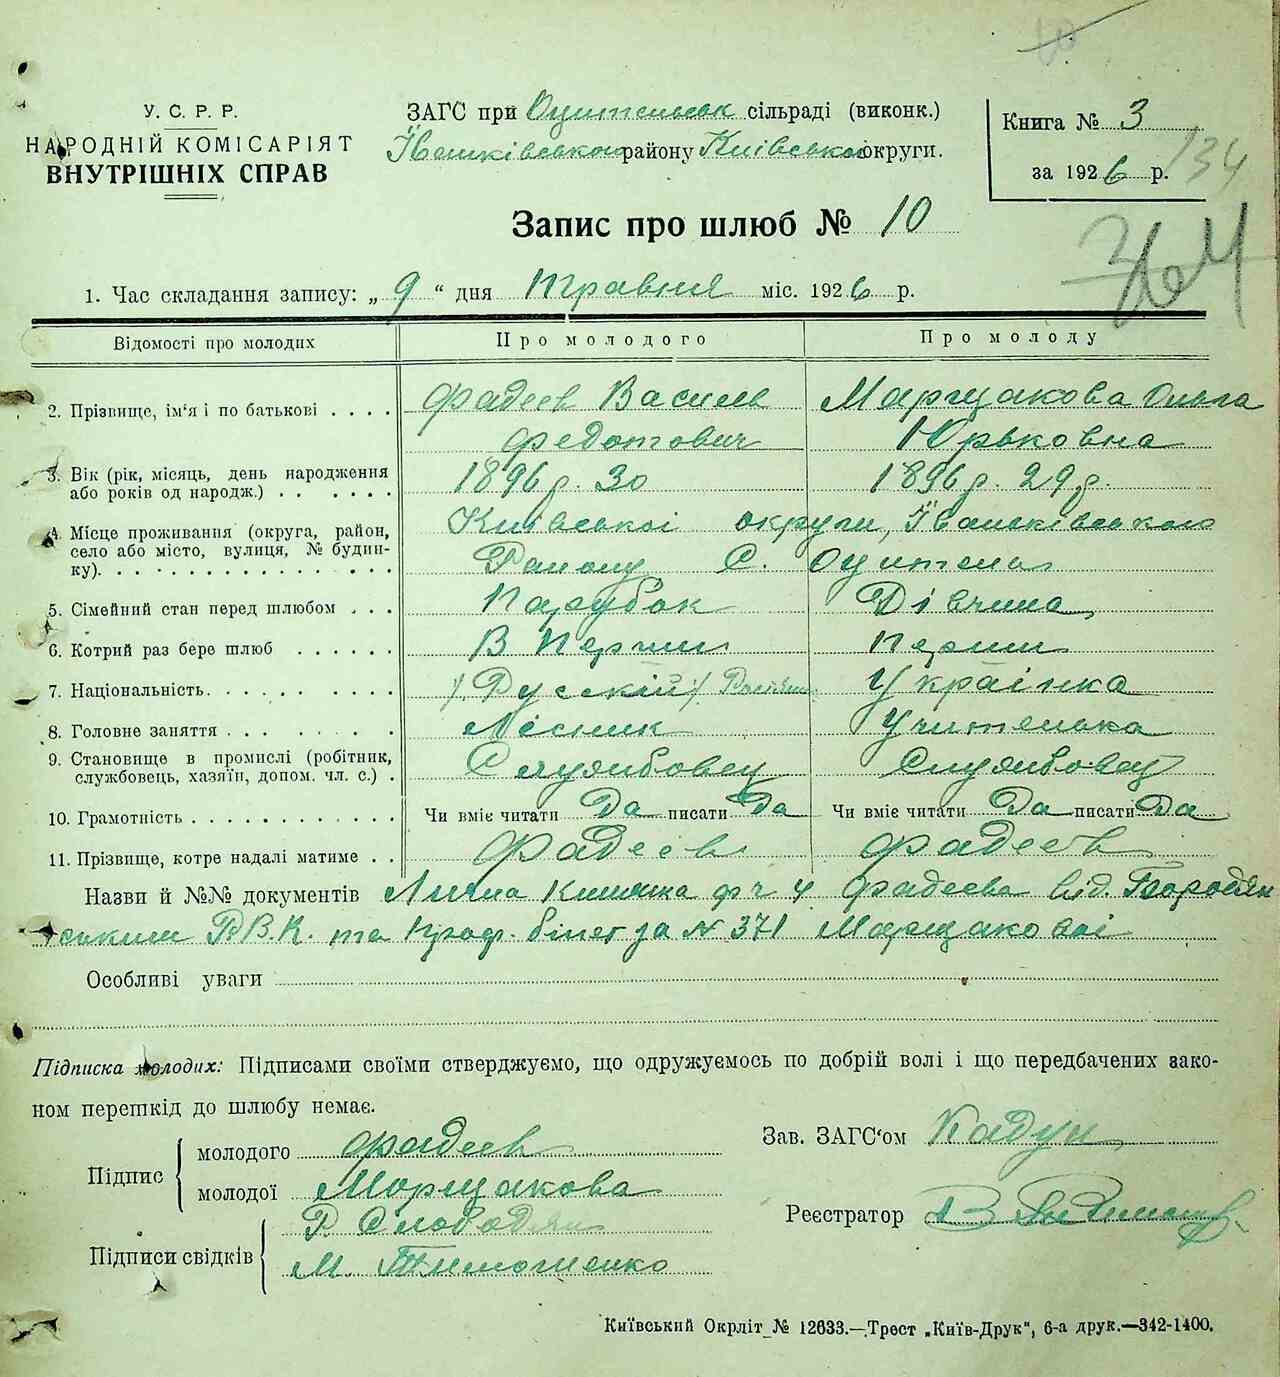 У. С. Р. Р.
НАРОДНІЙ КОМІСАРІЯТ
ВНУТРІШНІХ СПРАВ
ЗАГС при Оцительськ сільраді (виконк.)
району Київської округи.
Книга № 3
за 1926 р.
134
364
Запис про шлюб № 10
1. Час складання запису: „ 9 “ дня Травня міс. 1926 р.
Відомості про молодих
Про молодого
Про молоду
2. Прізвище, ім'я і по батькові . . . .
Фадеев Василь
Федотович
Марщакова Ольга
Юрьковна
3. Вік (рік, місяць, день народження
або років од народж.) . . . . . .
1896 р. 30
1896 р. 29 р.
4. Місце проживання (округа, район,
село або місто, вулиця, № будин-
ку). . . . . . . . . . . . . . . .
Київської округи, Їваньківського
Району С. Оцитель
5. Сімейний стан перед шлюбом . . .
Парубок
Дівчина
6. Котрий раз бере шлюб . . . . . .
В Перший
Перший
7. Національність. . . . . . . . . .
/Русскій/
Українка
8. Головне заняття . . . . . . . .
Лісник
Учителька
9. Становище в промислі (робітник,
службовець, хазяїн, допом. чл. с.) .
Службовец
Службовец
10. Грамотність . . . . . . . . . . .
Чи вміє читати Да писати Да
Чи вміє читати Да писати Да
11. Прізвище, котре надалі матиме . .
Фадеєв
Фадеєв
Назви й №№ документів книжка Фадеева від Бородян
ським Р.В.К. та Проф. білет за № 371 Марщакової
Особливі уваги
Підписка молодих: Підписами своїми стверджуємо, що одружуємось по добрій волі і що передбачених зако-
ном перешкід до шлюбу немає.
Підпис
молодого Фадеев
молодої Морщакова
Підписи свідків
Р Слободян
М. Тимошенко
Зав. ЗАГС'ом Кадун
Реєстратор В
Київський Окрліт № 12633.—Трест „Київ-Друк“, 6-а друк.—342-1400.